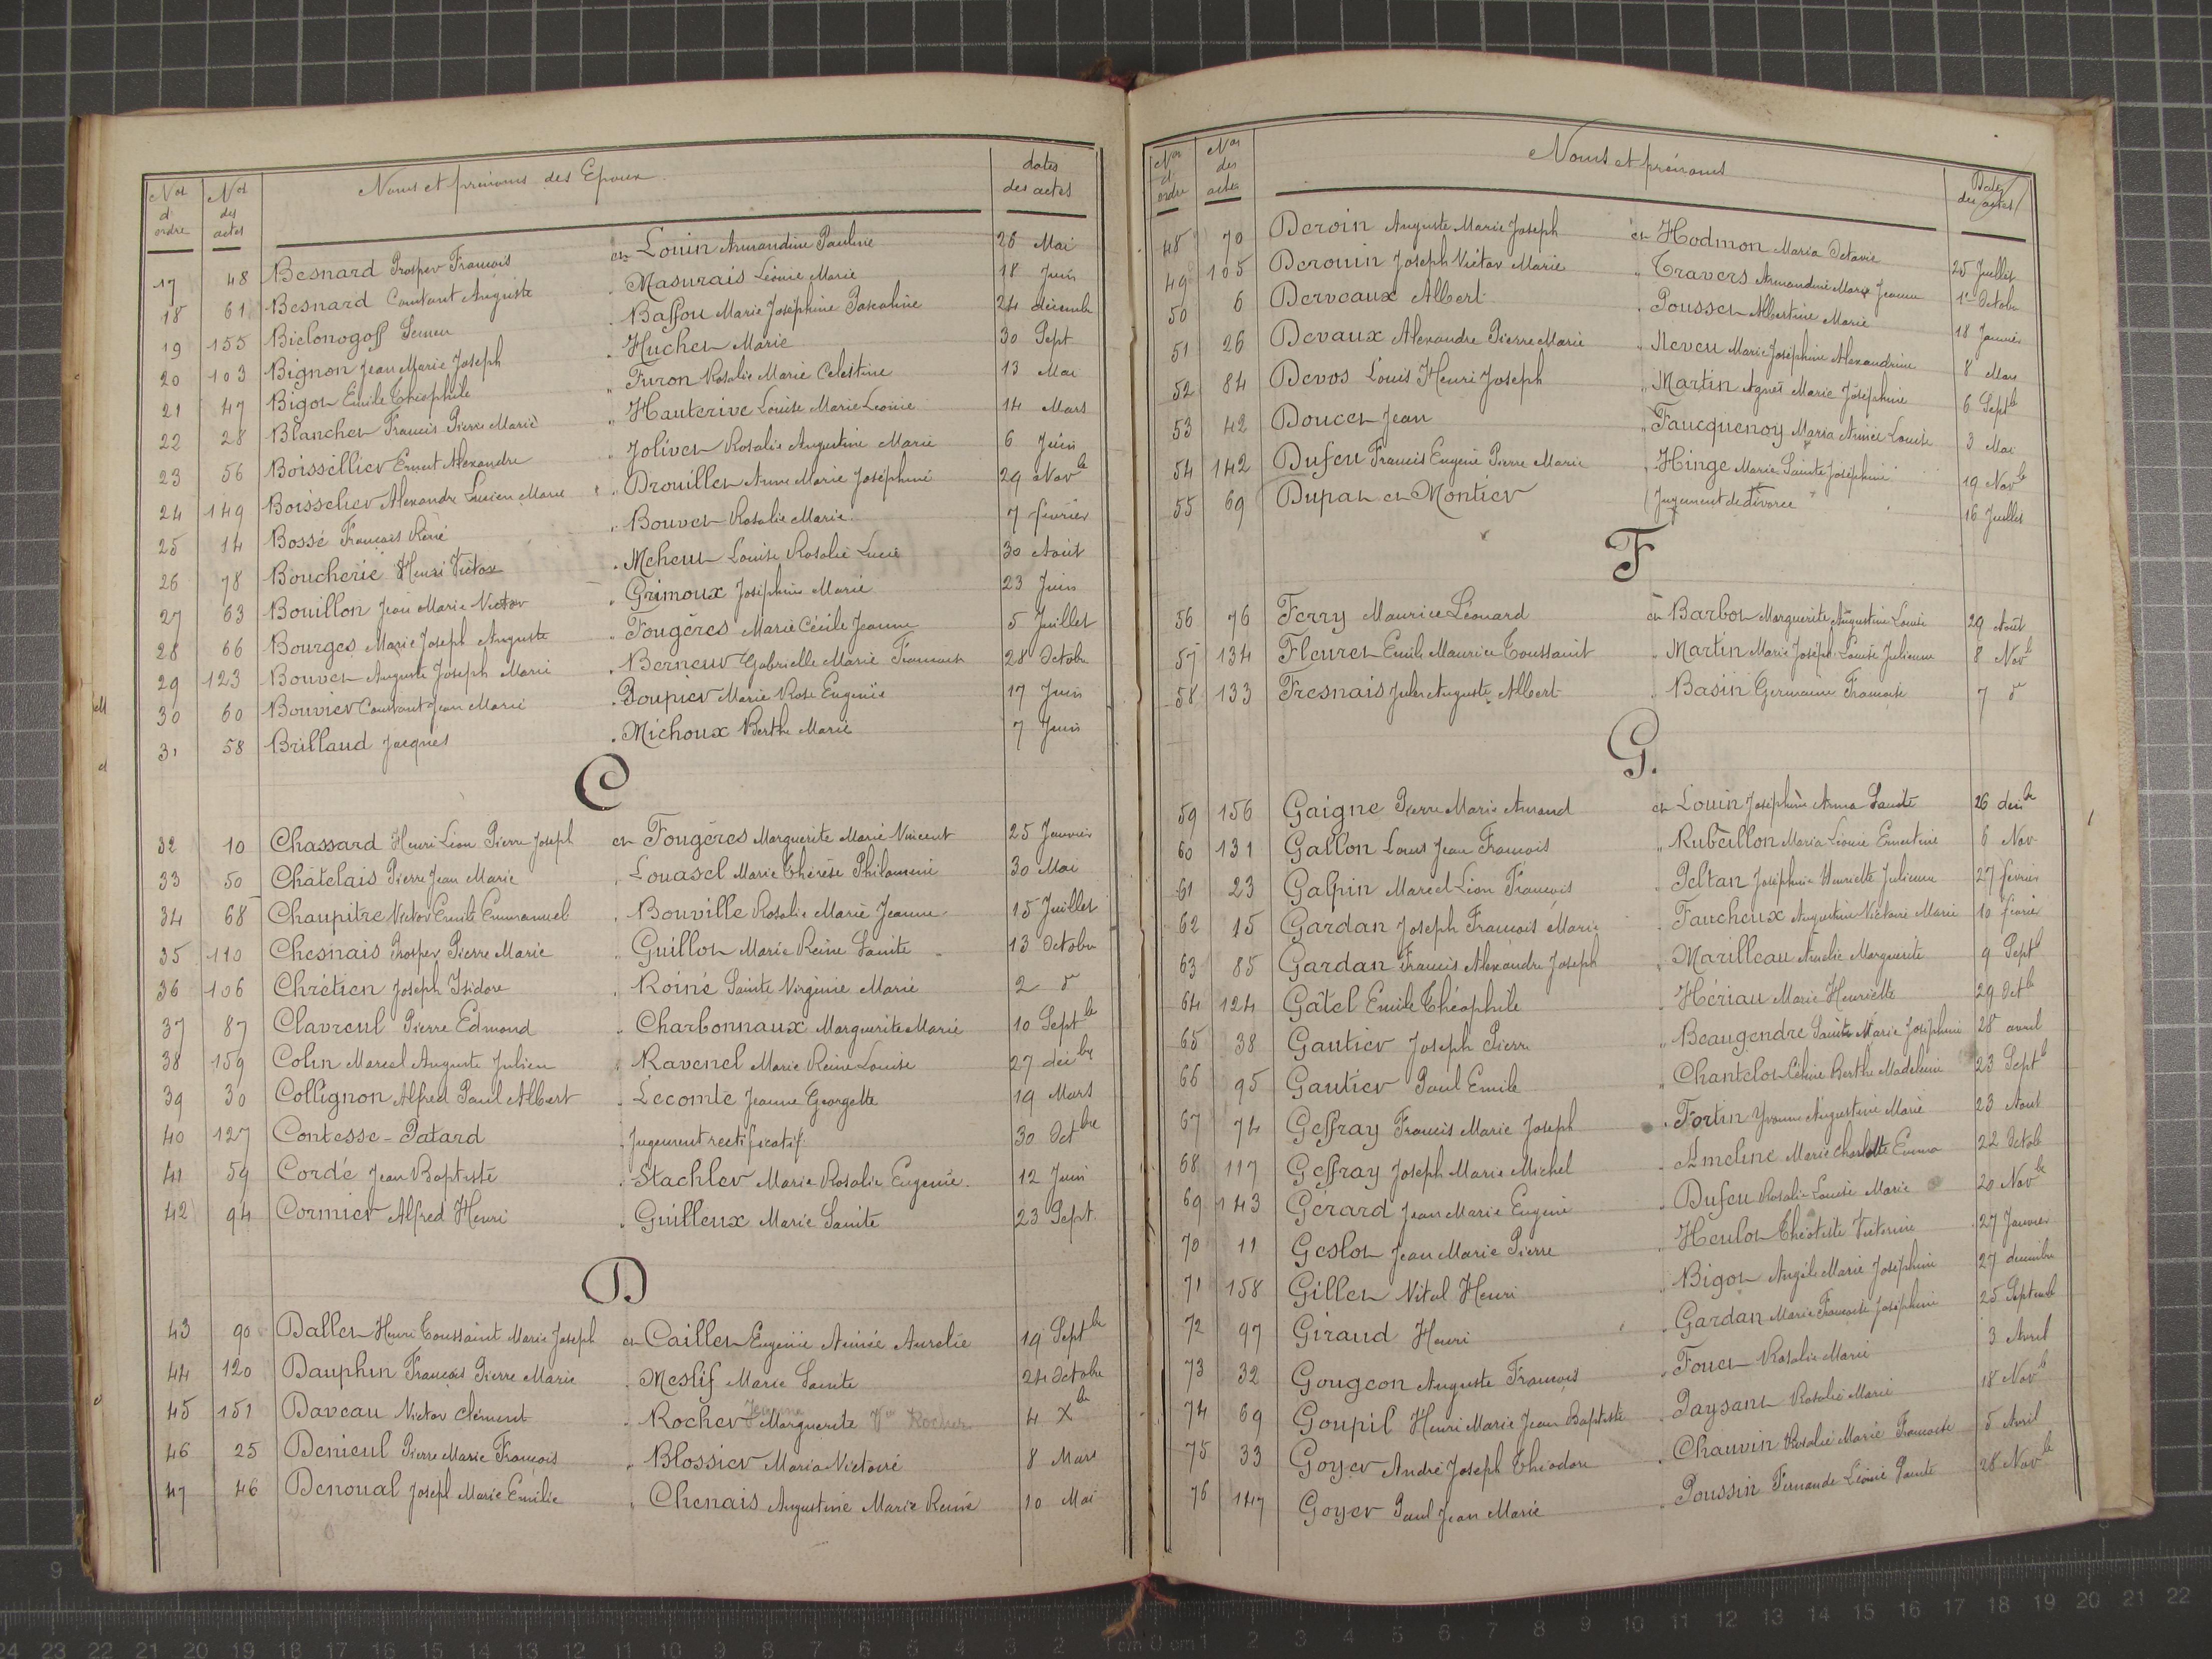 Nos d' ordre Nos des actes Noms et prénoms des Epoux dates des actes
17 48 Besnard Prosper François et Louin Armandine Pauline 26 Mai
18 61 Besnard Constant Auguste " Masurais Léonie Marie 18 Juin
19 155 Bielonogoff Semen " Baffou Marie Joséphine Pascaline 24 décembre
20 103 Bignon Jean Marie Joseph " Huchet Marie 30 Sept
21 47 Bigot Emile Théophile " Furon Rosalie Marie Celestine 13 Mai
22 28 Blanchet Francis Pierre Marie " Hauterive Louise Marie Leonie 14 Mars
23 56 Boissellier Ernest Alexandre " Jolivet Rosalie Augustine Marie 6 Juin
24 149 Boisselier Alexandre Lucien Marie " Drouillet Anne Marie Joséphine 29 Novbe
25 14 Bossé François René " Bouvet Rosalie Marie 7 février
26 78 Boucherie Henri Victor " Meheut Louise Rosalie Lucie 30 Août
27 63 Bouillon Jean Marie Victor " Grimoux Joséphine Marie 23 Juin
28 66 Bourges Marie Joseph Auguste " Fougères Marie Cécile Jeanne 5 Juillet
29 123 Bouvet Auguste Joseph Marie " Berneur Gabrielle Marie Françoise 28 Octobre
30 60 Bouvier Constant Jean Marie " Poupier Marie Rose Eugénie 17 Juin
31 58 Brillaud Jacques " Michoux Berthe Marie 7 Juin
C
32 10 Chassard Henri Léon Pierre Joseph et Fougères Marguerite Marie Vincent 25 Janvier
33 50 Châtelais Pierre Jean Marie " Louasel Marie Thérèse Philomène 30 Mai
34 68 Chaupitre Victor Emile Emmanuel " Bouville Rosalie Marie Jeanne 15 Juillet
35 110 Chesnais Prosper Pierre Marie " Guillot Marie Reine Sainte 13 Octobre
36 106 Chrétien Joseph Isidore " Roiné Sainte Virginie Marie 2 d°
37 87 Clavreul Pierre Edmond " Charbonnaux Marguerite Marie 10 Septbe
38 159 Colin Marcel Auguste Julien " Ravenel Marie Reine Louise 27 décbre
39 30 Collignon Alfred Paul Albert " Lecomte Jeanne Georgette 19 Mars
40 127 Contesse - Patard " Jugement rectificatif 30 Octbre
41 59 Cordé Jean Baptiste " Stachler Marie Rosalie Eugenie 12 Juin
42 94 Cormier Alfred Henri " Guilleux Marie Sainte 23 Sept.
D
43 90 Dallet Henri Toussaint Marie Joseph et Caillet Eugénie Aimée Aurelie 19 Septbe
44 120 Dauphin François Pierre Marie " Meslif Marie Sainte 24 Octobre
45 151 Daveau Victor Clément " Rocher Jeanne Marguerite Vve Rocher 4 Xbre
46 25 Denieul Pierre Marie François " Blossier Maria Victoire 8 Mars
47 46 Denoual Joseph Marie Emilie " Chenais Augustine Marie Reine 10 Mai
Nos d' ordre Nos des actes Noms et prénoms Dates des actes
48 70 Deroin Auguste Marie Joseph et Hodmon Maria Octavie 25 Juillet
49 105 Derouin Joseph Victor Marie " Travers Armandine Marie Jeanne 1er Octobre
50 6 Derveaux Albert " Pousset Albertine Marie 18 Janvier
51 26 Devaux Alexandre Pierre Marie " Neveu Marie Joséphine Alexandrine 8 Mars
52 84 Devos Louis Henri Joseph " Martin Agnès Marie Joséphine 6 Septb
53 42 Doucet Jean " Faucquenoy Maria Aimée Louise 3 Mai
54 142 Dufeu Francis Eugene Pierre Marie " Hinge Marie Sainte Joséphine 19 Novb
55 69 Dupas et Montier (Jugement de divorce " 16 Juillet
F
56 76 Ferry Maurice Léonard et Barbot Marguerite Augustine Louise 29 Août
57 134 Fleuret Emile Maurice Toussaint " Martin Marie Joseph Louise Julienne 8 Novb
58 133 Fresnais Jules Auguste Albert " Basin Germaine Françoise 7 d°
G.
59 156 Gaigne Pierre Marie Armand et Louin Joséphine Anna Sainte 26 décbe
60 131 Gallon Louis Jean François " Rubeillon Maria Léonie Ernestine 6 Nov
61 23 Galpin Marcel Léon François " Peltan Joséphine Henriette Julienne 27 février
62 15 Gardan Joseph François Marie " Faucheux Augustine Victoire Marie 10 février
63 85 Gardan Francis Alexandre Joseph " Marilleau Amélie Marguerite 9 Septb
64 124 Gâtel Emile Théophile " Hériau Marie Henriette 29 Octb
65 38 Gautier Joseph Pierre " Beaugendre Sainte Marie Joséphine 28 avril
66 95 Gautier Paul Emile " Chantelot Céline Berthe Madeleine 23 Septb
67 74 Geffray Francis Marie Joseph " Fortin Yvonne Augustine Marie 23 Aout
68 117 Geffray Joseph Marie Michel " Ameline Marie Charlotte Emma 22 Octob
69 143 Gérard Jean Marie Eugène " Dufeu Rosalie Louise Marie 20 Novbe
70 11 Geslot Jean Marie Pierre " Heulot Théotiste Victorine 27 Janvier
71 158 Gillet Vital Henri " Bigot Angèle Marie Joséphine 27 décembre
72 97 Giraud Henri " Gardan Marie Françoise Joséphine 25 Septemb
73 32 Gougeon Auguste François " Fouet Rosalie Marie 3 Avril
74 69 Goupil Henri Marie Jean Baptiste " Paysant Rosalie Marie 18 Novb
75 33 Goyer André Joseph Théodore " Chauvin Rosalie Marie Françoise 5 Avril
76 147 Goyer Paul Jean Marie " Poussin Fernande Léonie Sainte 28 Novb